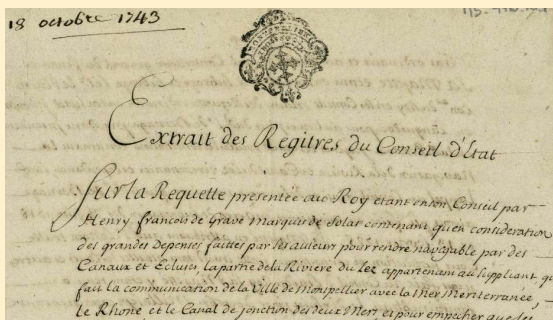 18 octobre 1743
Extrait des Regitres du Conseil d'Etat
Sur la Requette presentée au Roy étant en son Conseil par
Henry françois de Grave Marquis de Solas contenant qu'en consideration
des grandes depenses faittes par ses auteurs pour rendre navigable par des
Canaux et Ecluses, la partie de la Riviere du Lez appartenant au suppliant qui
fait la communication de la Ville de Montpellier avec la Mer Mediterranée,
le Rhone et le Canal de jonction des deux Mers et pour empecher que les